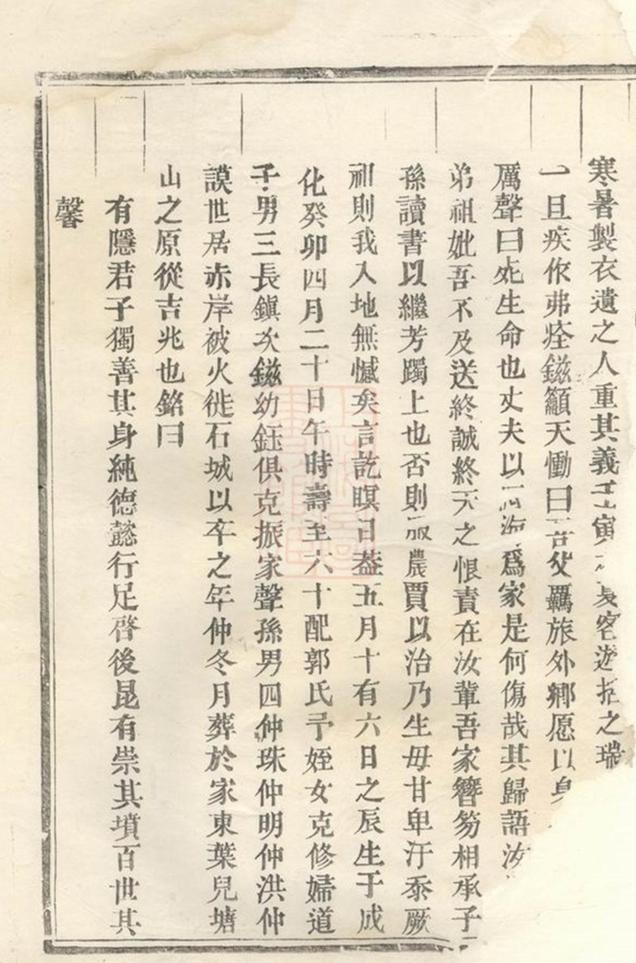 寒暑製衣遺之人重其義壬寅客遊括之瑞
一旦疾作弗痊鎡籲天慟曰吾父羈旅外鄉愿以身
厲聲曰死生命也丈夫以四海爲家是何傷哉其歸語汝
弟祖妣吾不及送終誠終天之恨責在汝輩吾家簪笏相承子
孫讀書以繼芳躅上也否則服農賈以治乃生毋甘卑汙忝厥
祖則我入地無憾矣言訖瞑目葢五月十有六日之辰生于成
化癸卯四月二十日午時壽至六十配郭氏予姪女克修婦道
子男三長鎭次鎡幼鈺俱克振家聲孫男四仲珠仲明仲洪仲
謨世居赤岸被火徙石城以卒之年仲冬月葬於家東葉兒塘
山之原從吉兆也銘曰
有隱君子獨善其身純德懿行足啓後昆有崇其墳百世其
馨